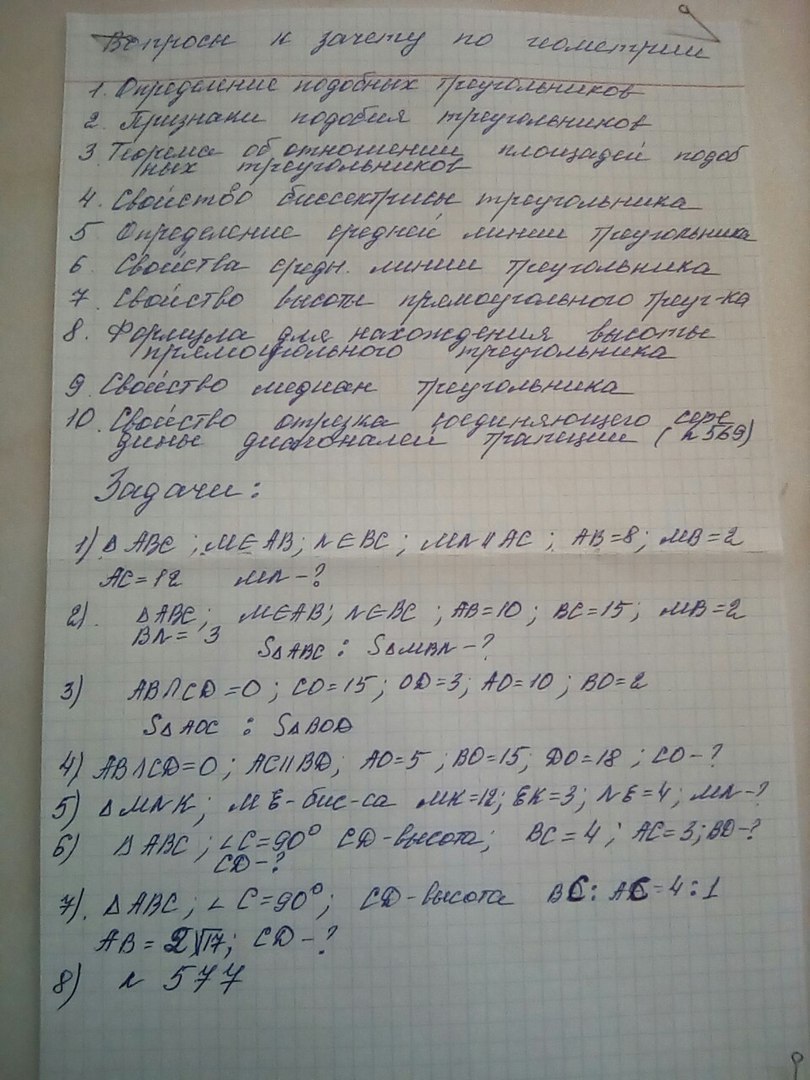 Вопросы к зачету по геометрии
1. Определение подобных треугольников
2. Признаки подобия треугольников
3 Теорема об отношении площадей подоб
ных треугольников
4. Свойство биссектрисы треугольника
5 Определение средней линии треугольника
6. Свойства средн. линии треугольника
7. Свойство высоты прямоугольного треуг-ка
8. Формула для нахождения высоты
прямоугольного треугольника
9. Свойство медиан треугольника
10. Свойство отрезка соединяющего сере
дины диагоналей трапеции (n 569)
Задачи:
1) △ ABC ; M∈AB; N∈BC ; MN∥AC ; AB=8; MB=2
AC=12 MN-?
2). △ABC; M∈AB; N∈BC ; AB=10; BC=15; MB=2
BN= 3 S△ABC : S△MBN-?
3) AB∩CD=O; CO=15; OD=3; AO=10; BO=2
S△AOC : S△BOD
4) AB∩CD=O; AC∥BD; AO=5; BO=15; DO=18; CO-?
5) △MNK; ME-бис-са MK=12; EK=3; NE=4; MN-?
6) △ABC; ∠C=90° CD-высота; BC=4; AC=3; BD-?
CD-?
7). △ABC; ∠C=90°; CD-высота BC: AC=4:1
AB=2√17; CD-?
8) n 577